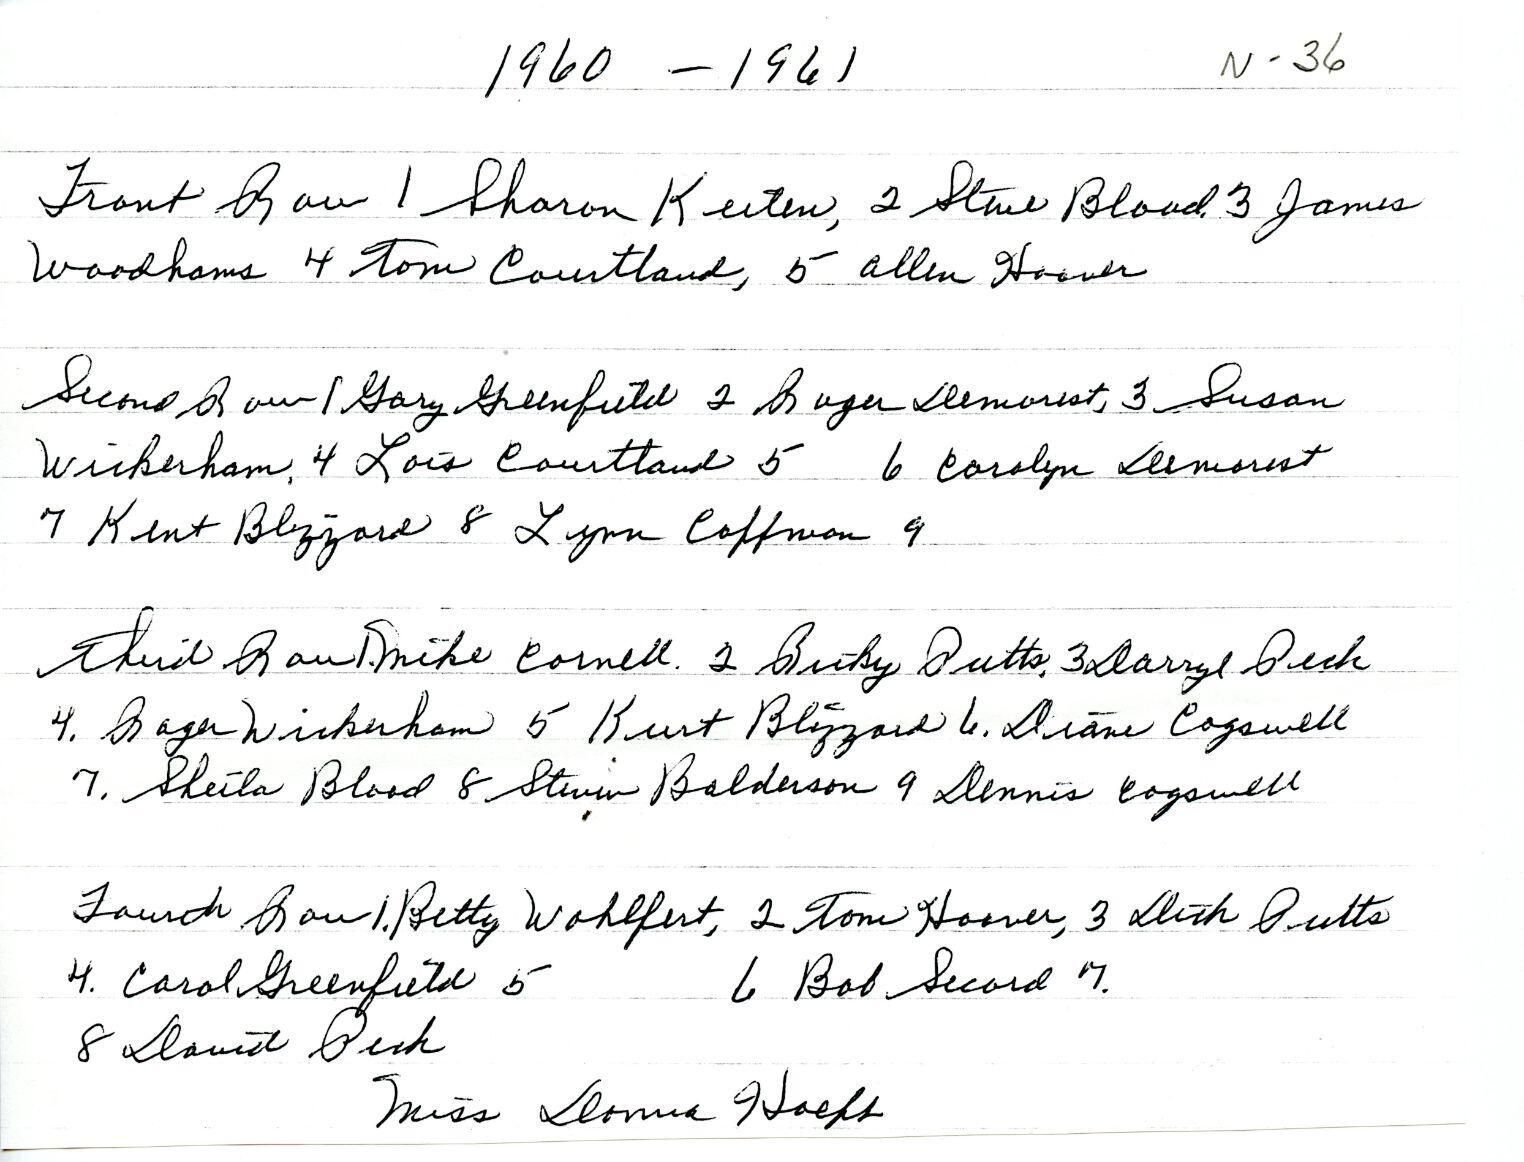 1960 - 1961 N-36
Front Row 1 Sharon Keiten, 2 Steve Blood, 3 James
Woodhams 4 Tom Courtland, 5 Allen Hoover
Second Row 1 Gary Greenfield 2 Roger Demorest, 3 Susan
Wickerham, 4 Lois Courtland 5 6 Carolyn Demorest
7 Kent Blizzard 8 Lynn Coffman 9
Third Row 1. Mike Cornell. 2 Ricky Putts, 3 Darryl Peck
4. Roger Wickerham 5 Kurt Blizzard 6. Diane Cogswell
7. Sheila Blood 8 Steven Balderson 9 Dennis Cogswell
Fourth Row 1. Betty Wohlfert, 2 Tom Hoover, 3 Dick Putts
4. Carol Greenfield 5 6 Bob Secord 7.
8 David Peck
Miss Donna Hoeft